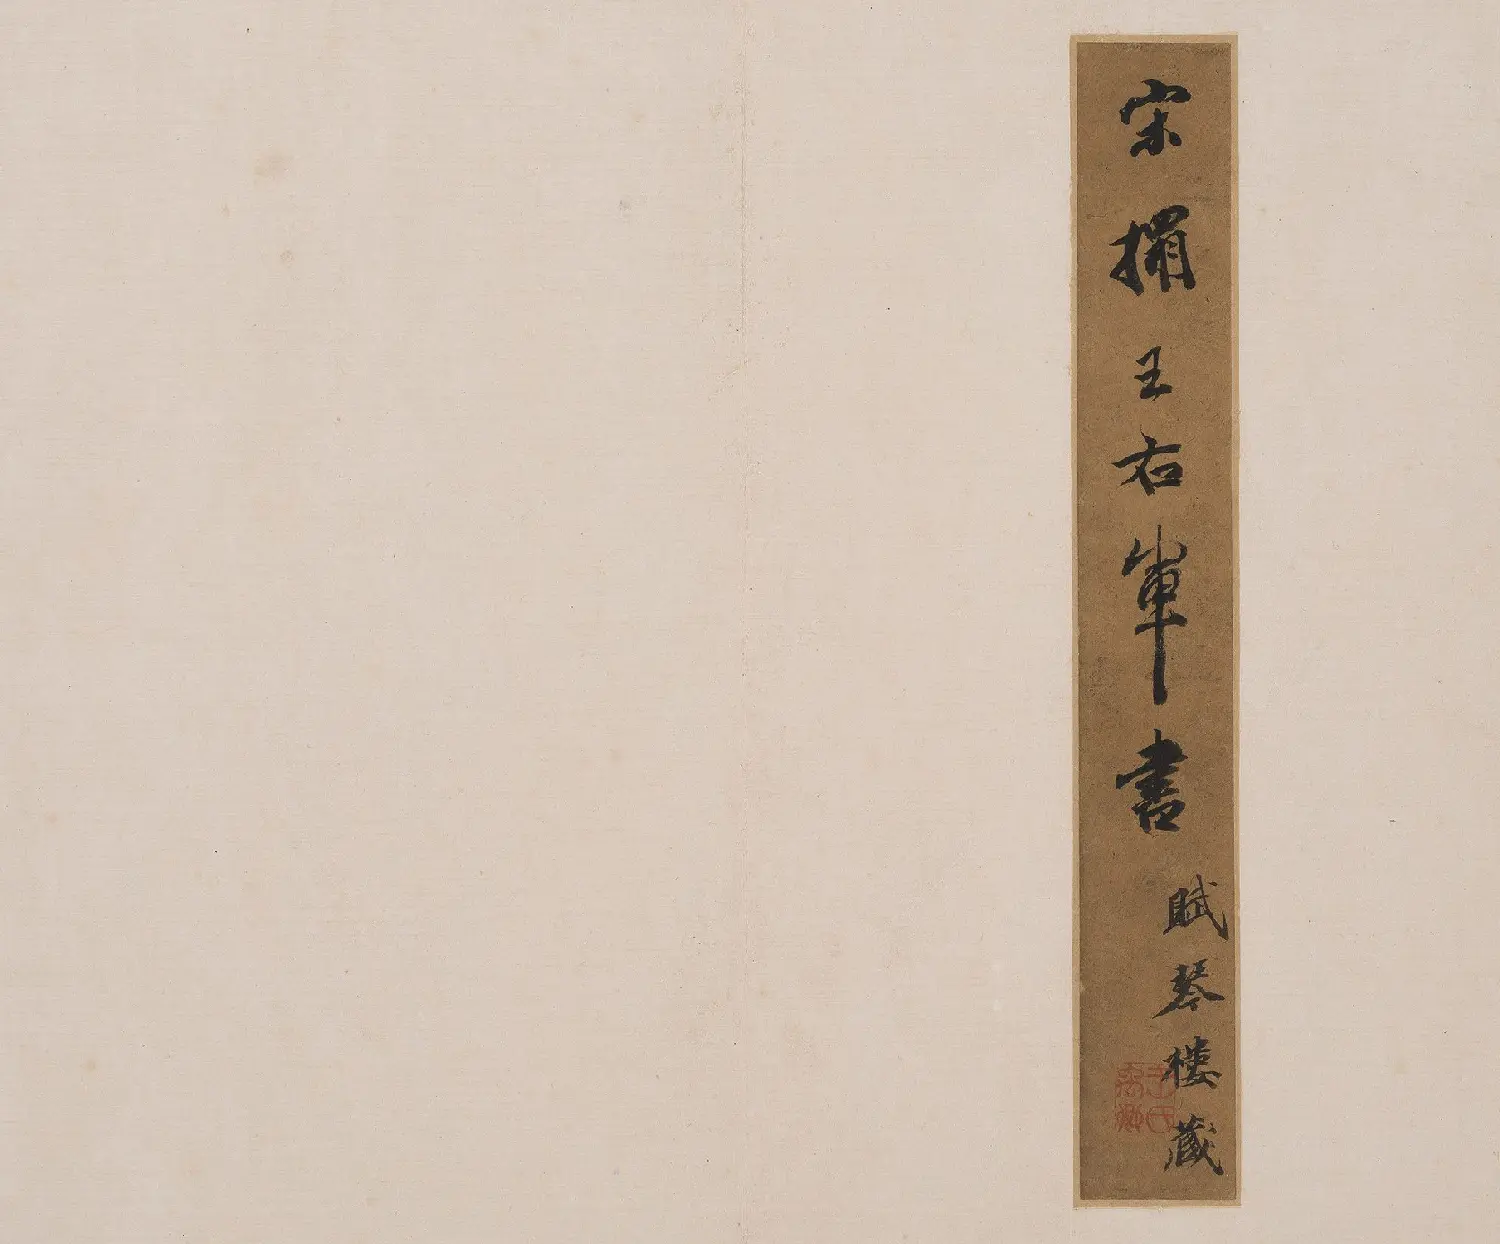 宋搨王右軍書
賦琴樓藏